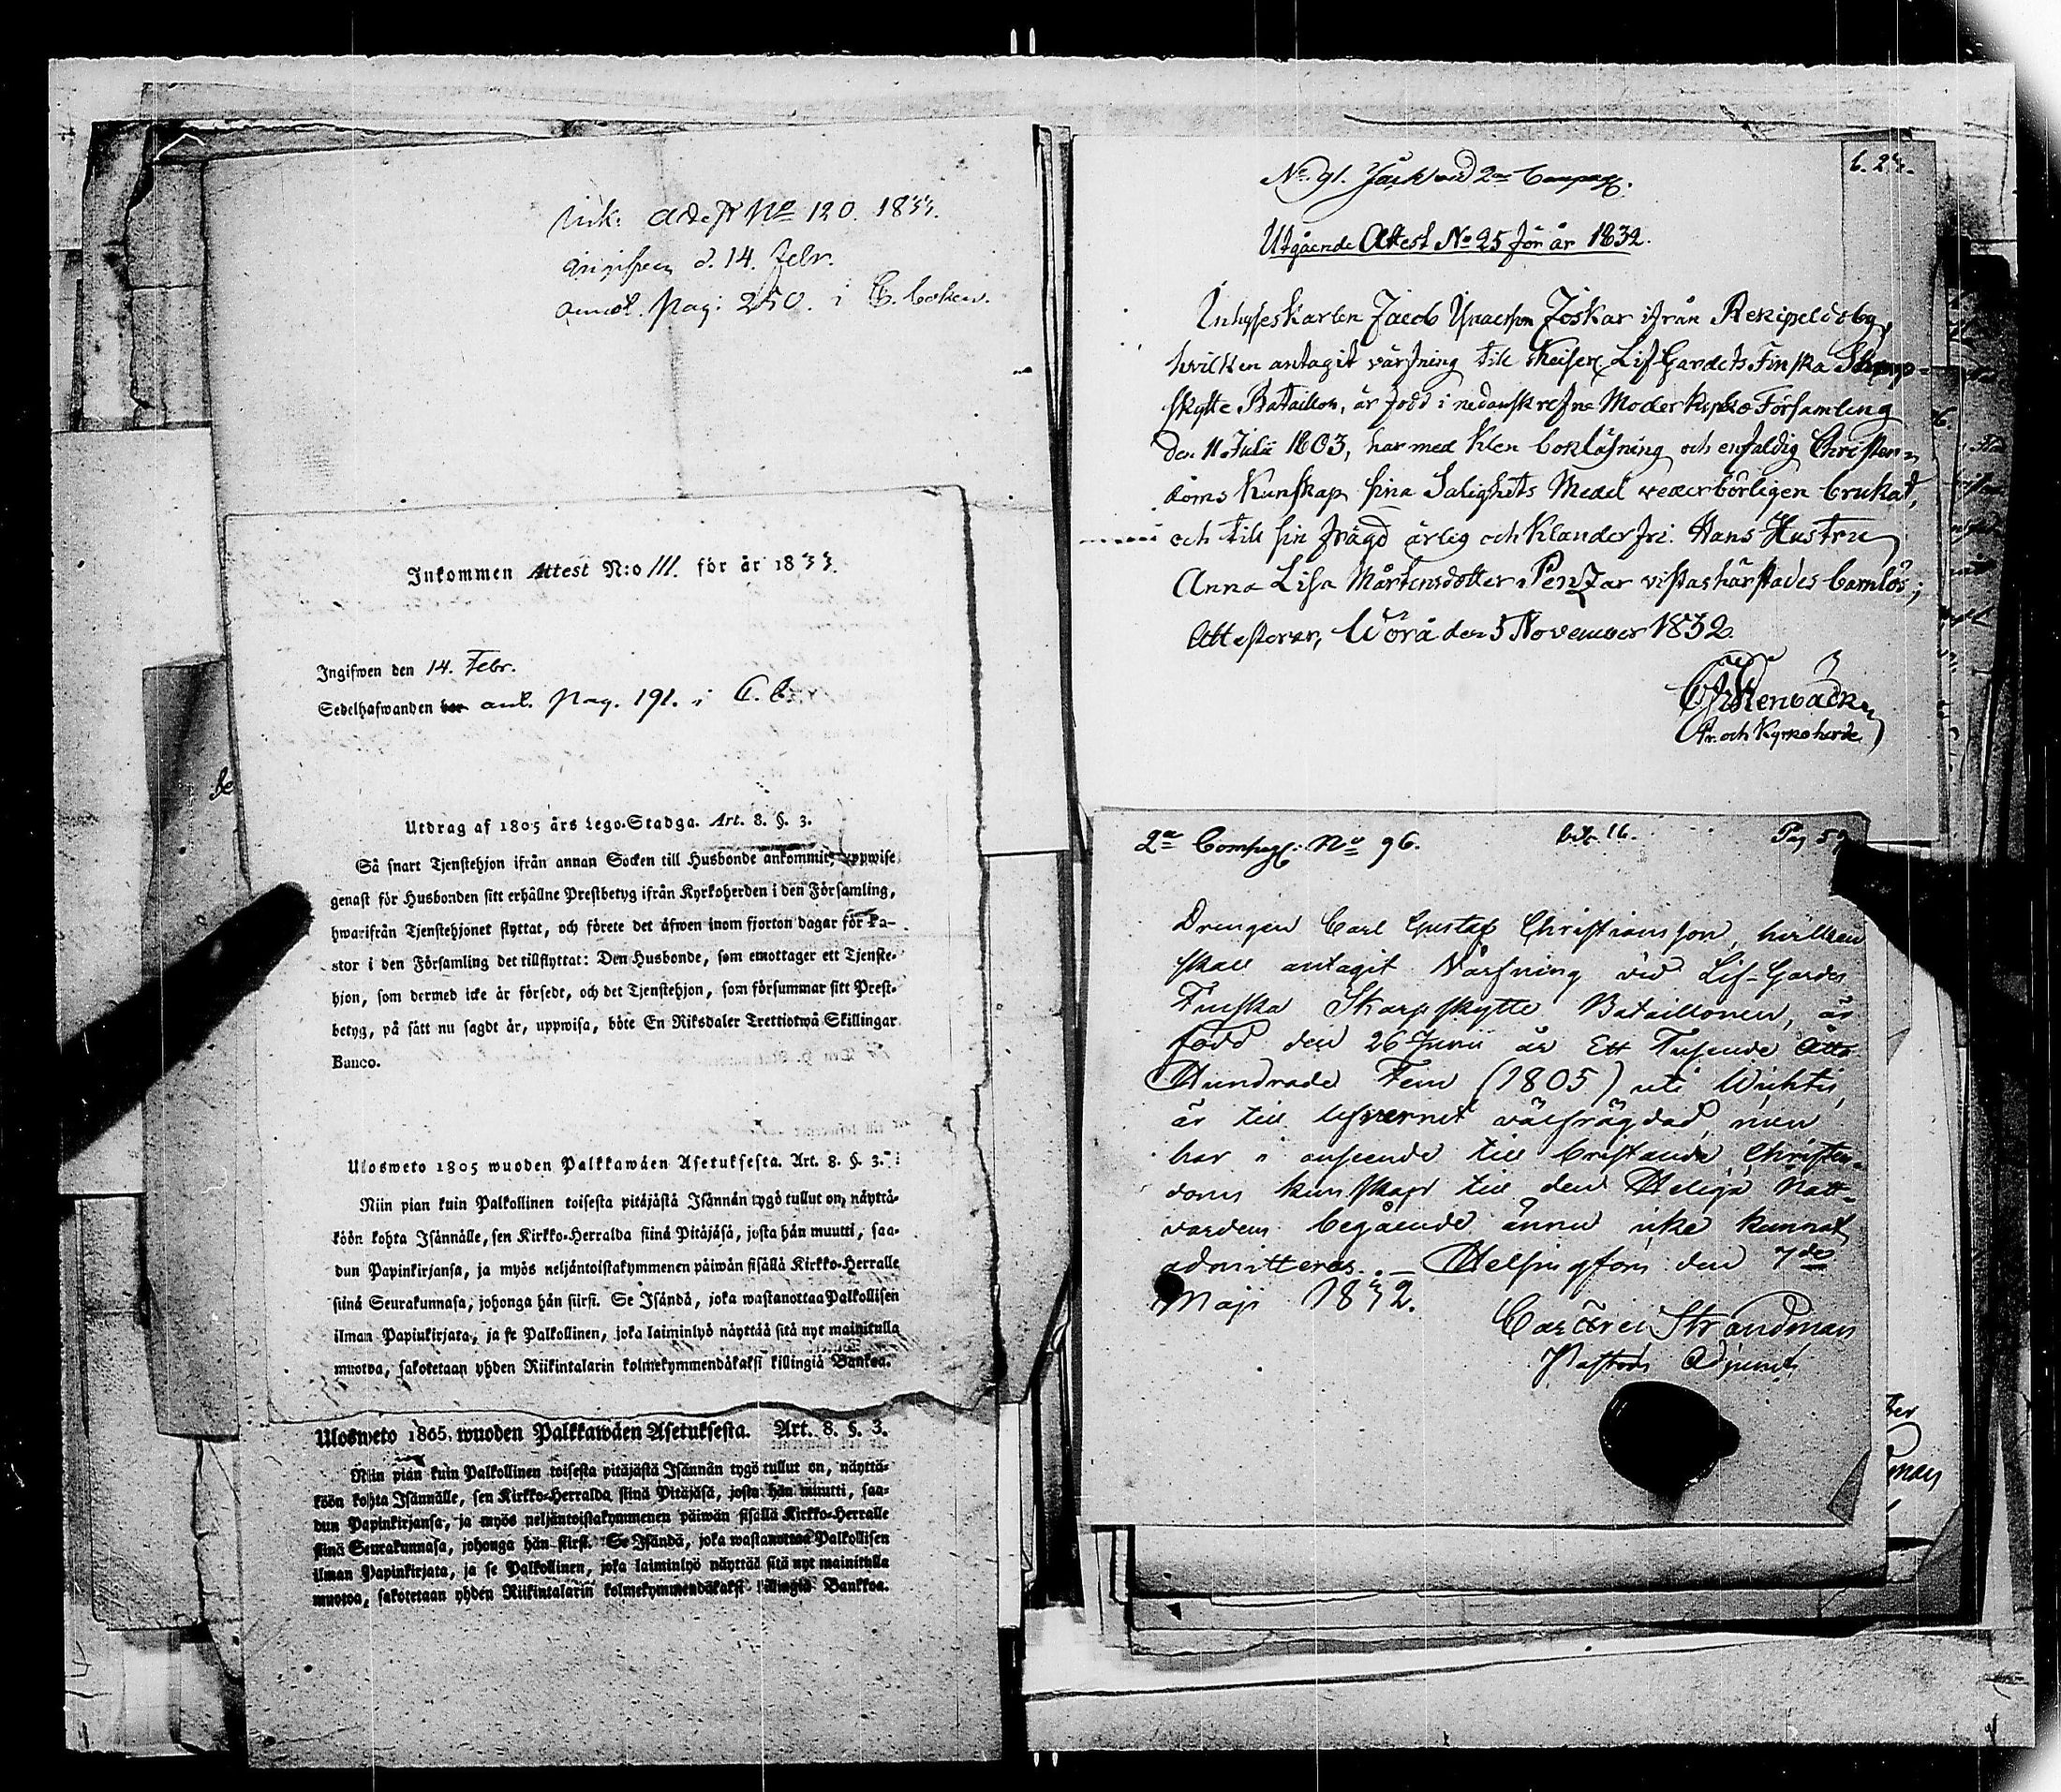 Ink. Attest No 120. 1833.
Ingifven d. 14. Febr.
annot. pag: 250. i C. boken.
Inkommen Attest N:o 111. för år 1833.
Ingifwen den 14. Febr.
Sedelhafwanden har ant. pag. 191. i C. b.
Utdrag af 1805 års Lego-Stadga. Art. 8. §. 3.
Så snart Tjenstehjon ifrån annan Socken till Husbonde ankommit, uppwise
genast för Husbonden sitt erhållne Prestbetyg ifrån Kyrkoherden i den Församling,
hwarifrån Tjenstehjonet flyttat, och förete det äfwen inom fjorton dagar för Pa-
stor i den Församling det tillflyttat: Den Husbonde, som emottager ett Tjenste-
hjon, som dermed icke är försedt, och det Tjenstehjon, som försummar sitt Prest-
betyg, på sätt nu sagdt är, uppwisa, böte En Riksdaler Trettiotwå Skillingar
Banco.
Ulosweto 1805 wuoden Palkkawäen Asetuksesta. Art. 8. §. 3.
Niin pian kuin Palkollinen toisesta pitäjästä Isännän tygö tullut on, näyttä-
köön kohta Isännälle, sen Kirkko-Herralda siinä Pitäjäsä, josta hän muutti, saa-
dun Papinkirjansa, ja myös neljäntoistakymmenen päiwän sisällä Kirkko-Herralle
siinä Seurakunnasa, johonga hän siirsi. Se Isändä, joka wastanottaa Palkollisen
ilman Papinkirjata, ja se Palkollinen, joka laiminlyö näyttää sitä nyt mainitulla
muotoa, sakotetaan yhden Riikintalarin kolmekymmendäkaksi killingiä Bankoa.
Ulosweto 1805. wuoden Palkkawäen Asetuksesta. Art. 8. §. 3.
Niin pian kuin Palkollinen toisesta pitäjästä Isännän tygö tullut on, näyttä-
köön kohta Isännälle, sen Kirkko-Herralda siinä Pitäjäsä, josta hän muutti, saa-
dun Papinkirjansa, ja myös neljäntoistakymmenen päiwän sisällä Kirkko-Herralle
siinä Seurakunnasa, johonga hän siirsi. Se Isändä, joka wastanottaa Palkollisen
ilman Papinkirjata, ja se Palkollinen, joka laiminlyö näyttää sitä nyt mainitulla
muotoa, sakotetaan yhden Riikintalarin kolmekymmendäkaksi killingiä Bankoa.
No 91. vid 2a Compagn.
Utgående Attest No 25 för år 1832.
Inhyseskarlen Jacob Joskar ifrån Rekipeldoby,
hvilken antagit värfning till Keiserl. Lif Gardets Finska Skarp-
skytte Bataillon, är född i nedanskrefne Moderkyrko Församling
den 11 Julii 1803, har med klen bokläsning och enfaldig Christen-
doms Kunskap sina Salighets Medel vederbörligen brukat,
och till sin frägd ärlig och klanderfri. Hans Hustru
Anna Lisa Mårtensdotter Penzar vistas härstädes barnlös;
Attesterar, Wörå den 5 November 1832
Stenbäck
Pr. och Kyrkoherde
2a Compagn: No 96.
bil. 16.
Pag 59
Drengen Carl Gustaf Christiansson, hvilken
skall antagit Värfning vid Lif-Gardes
Finska Skarpskytte Bataillonen, är
född den 26 Junii år Ett Tusende Åtta
Hundrade Fem (1805) uti Wichtis,
är till lefvernet välfrägdad, men
har i anseende till bristande Christen-
doms kunskap till den Heliga Natt-
vardens begående ännu icke kunnat
admitteras. – Helsingfors den 7de
Maji 1832.
Strandman
Pastors Adjunct